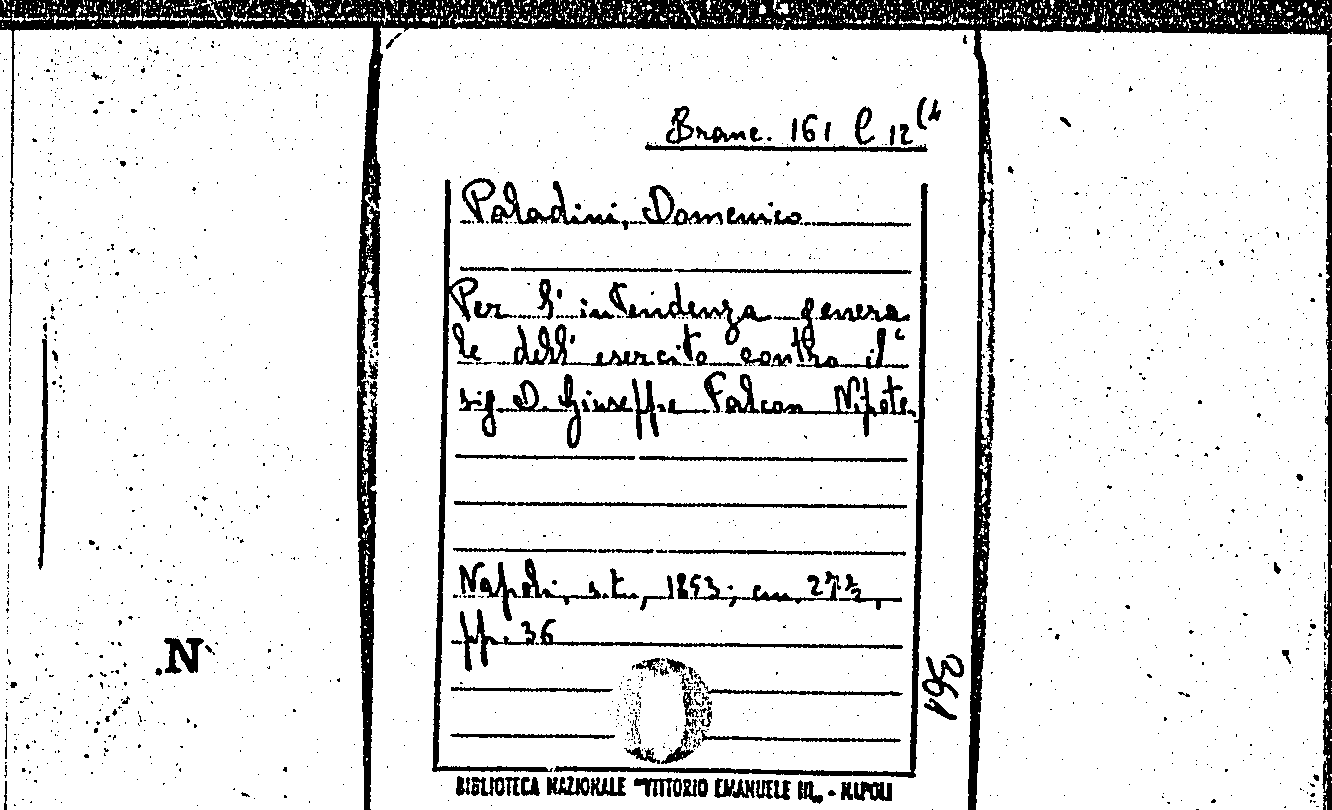 Branc. 161 C 12 (4
Paladini, Domenico
Per l'intendenza genera
le dell'esercito contro il
sig. D. Giuseppe Falcon Nipote.
Napoli, s.t., 1853; cm. 27½,
pp. 36
364
N.
BIBLIOTECA NAZIONALE "VITTORIO EMANUELE III„ - NAPOLI